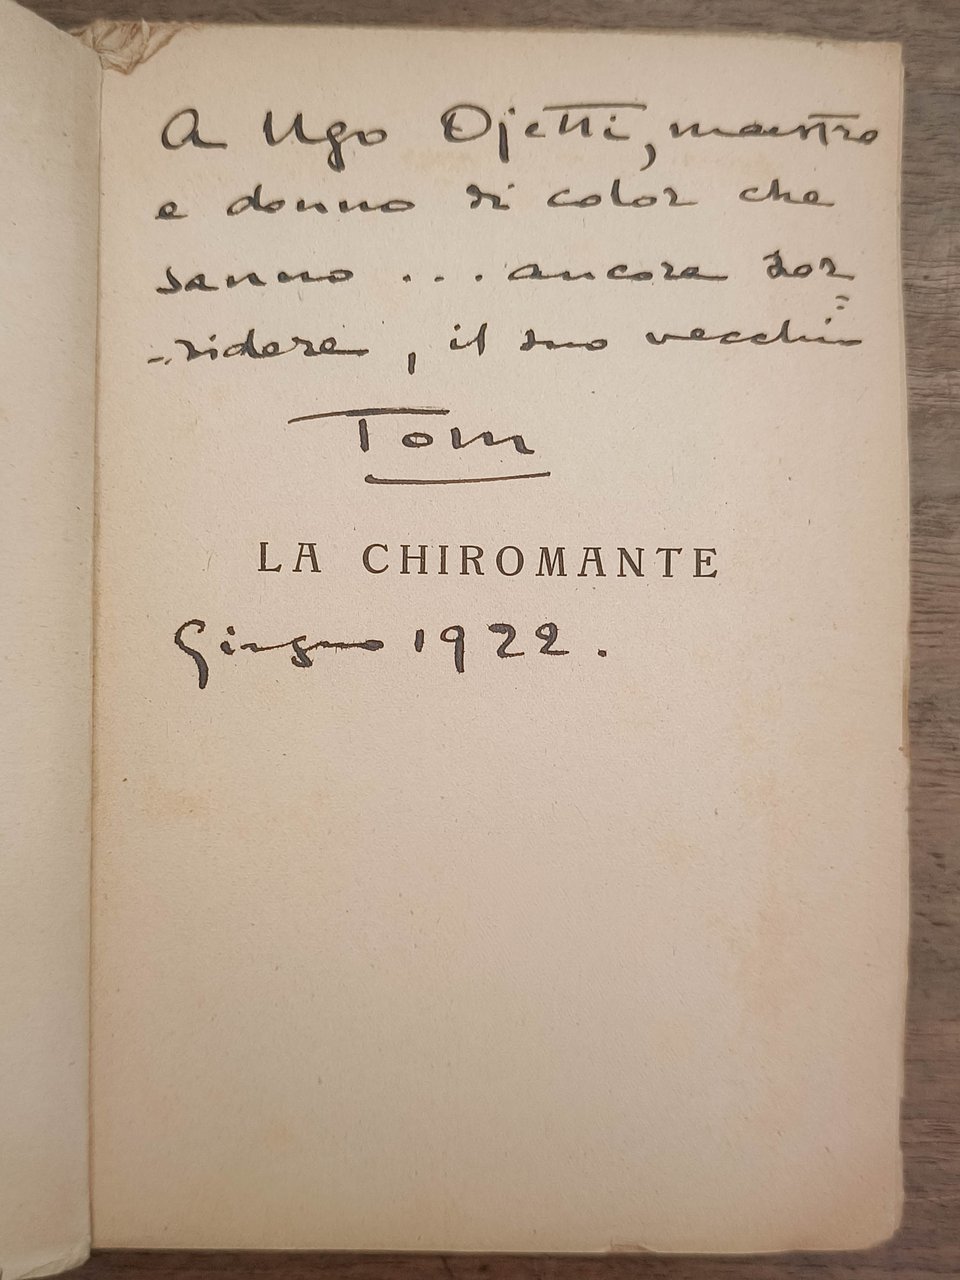 A Ugo Ojetti, maestro
e donno di color che
sanno ... ancora sor
-ridere, il suo vecchio
Tom
LA CHIROMANTE
Giugno 1922.